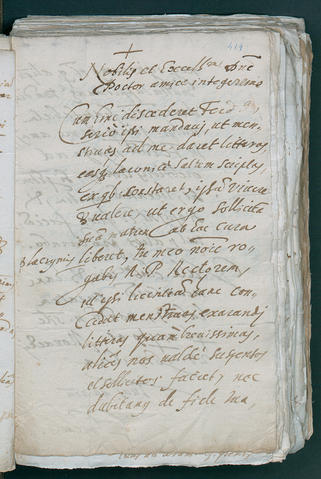 419
Nobilis et Excellme Dne
Doctor amice integerrime
Cum hinc discederet Ferd
serio ipsi mandavi, ut men-
struas ad me daret litteras
easq laconicè saltem scriptas,
ex qb constaret, ipsū vivere
& valere, ut ergo sollicita
sua mater ab hac cura
& lacrymis liberet, tu meo noīe ro-
gabis R. P. Rectorem,
ut ipsi licentiam dare con-
cedat menstruas exarandi
litteras quam brevissimas,
alias nos valdè
et sollicitos faciet, nec
dubitans de fide tua,